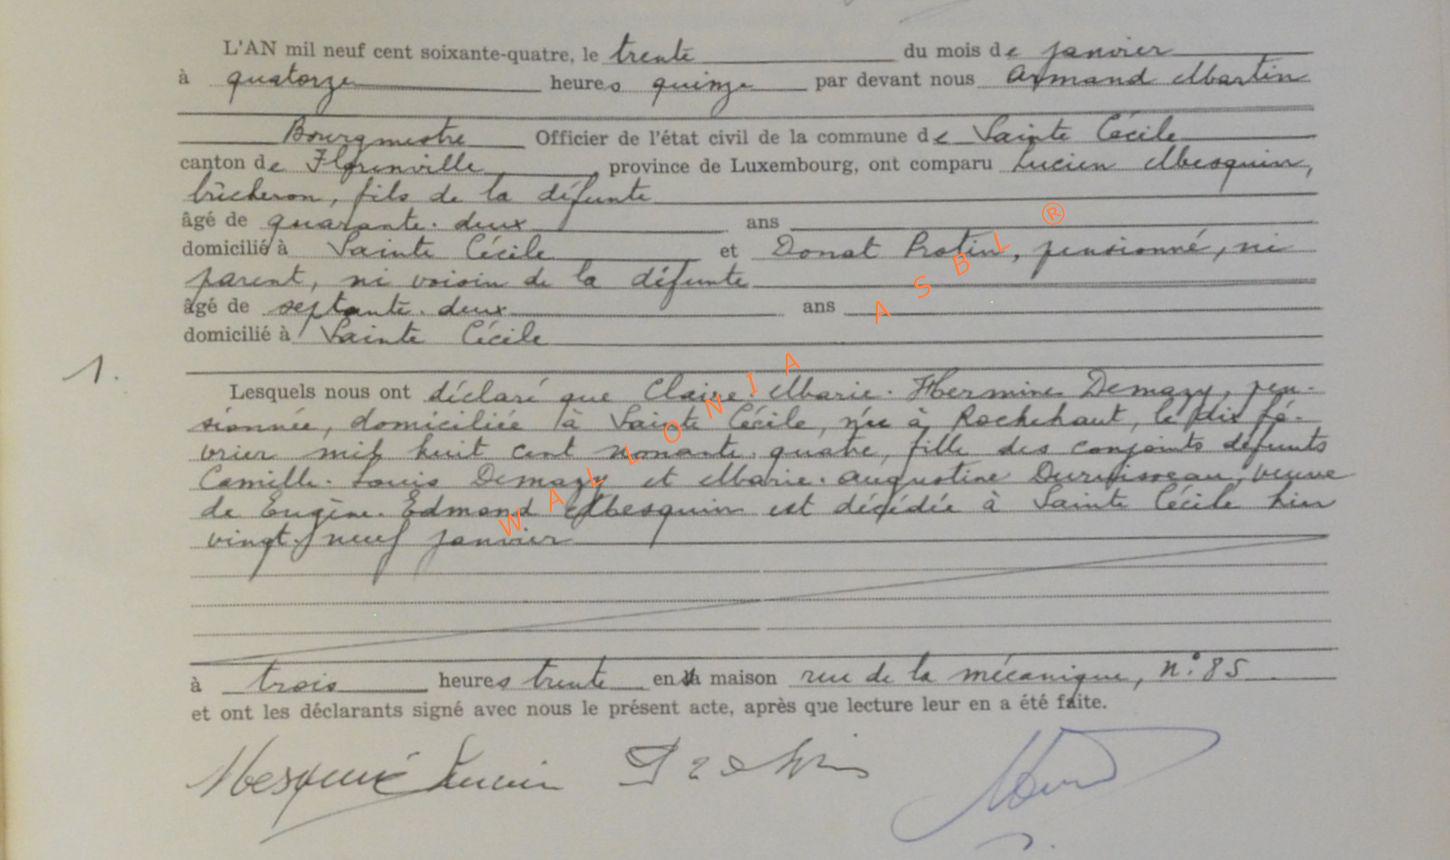 L'AN mil neuf cent soixante-quatre, le trente du mois de janvier
à quatorze heures quinze par devant nous Armand Martin
Bourgmestre Officier de l'état civil de la commune de Sainte Cécile
canton de Florenville, province de Luxembourg, ont comparu Lucien Mesquin,
bûcheron, fils de la défunte
âgé de quarante-deux ans
domicilié à Sainte Cécile et Donat Protin, pensionné, ni
parent, ni voisin de la défunte
âgé de septante-deux ans
domicilié à Sainte Cécile
1.
Lesquels nous ont déclaré que Claire-Marie-Hermine Demazy, pen-
sionnée, domiciliée à Sainte Cécile, née à Rochehaut, le dix fé-
vrier mil huit cent nonante-quatre, fille des conjoints défunts
Camille-Louis Demazy et Marie-Augustine veuve
de Eugène-Edmond Mesquin est décédée à Sainte Cécile hier
vingt-neuf janvier
à trois heures trente en sa maison rue de la mécanique, n° 85
et ont les déclarants signé avec nous le présent acte, après que lecture leur en a été faite.
Mesquin Lucien
WALLONIA ASBL ®